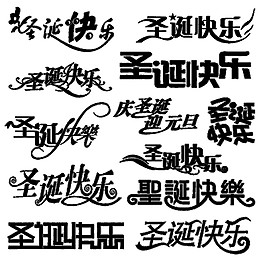 圣诞快乐
圣诞快乐
圣诞快乐
圣诞快乐
庆圣诞
迎元旦
圣诞快乐
圣诞快樂
圣诞快乐
圣诞快乐
聖誕快樂
圣诞快乐
圣诞快乐